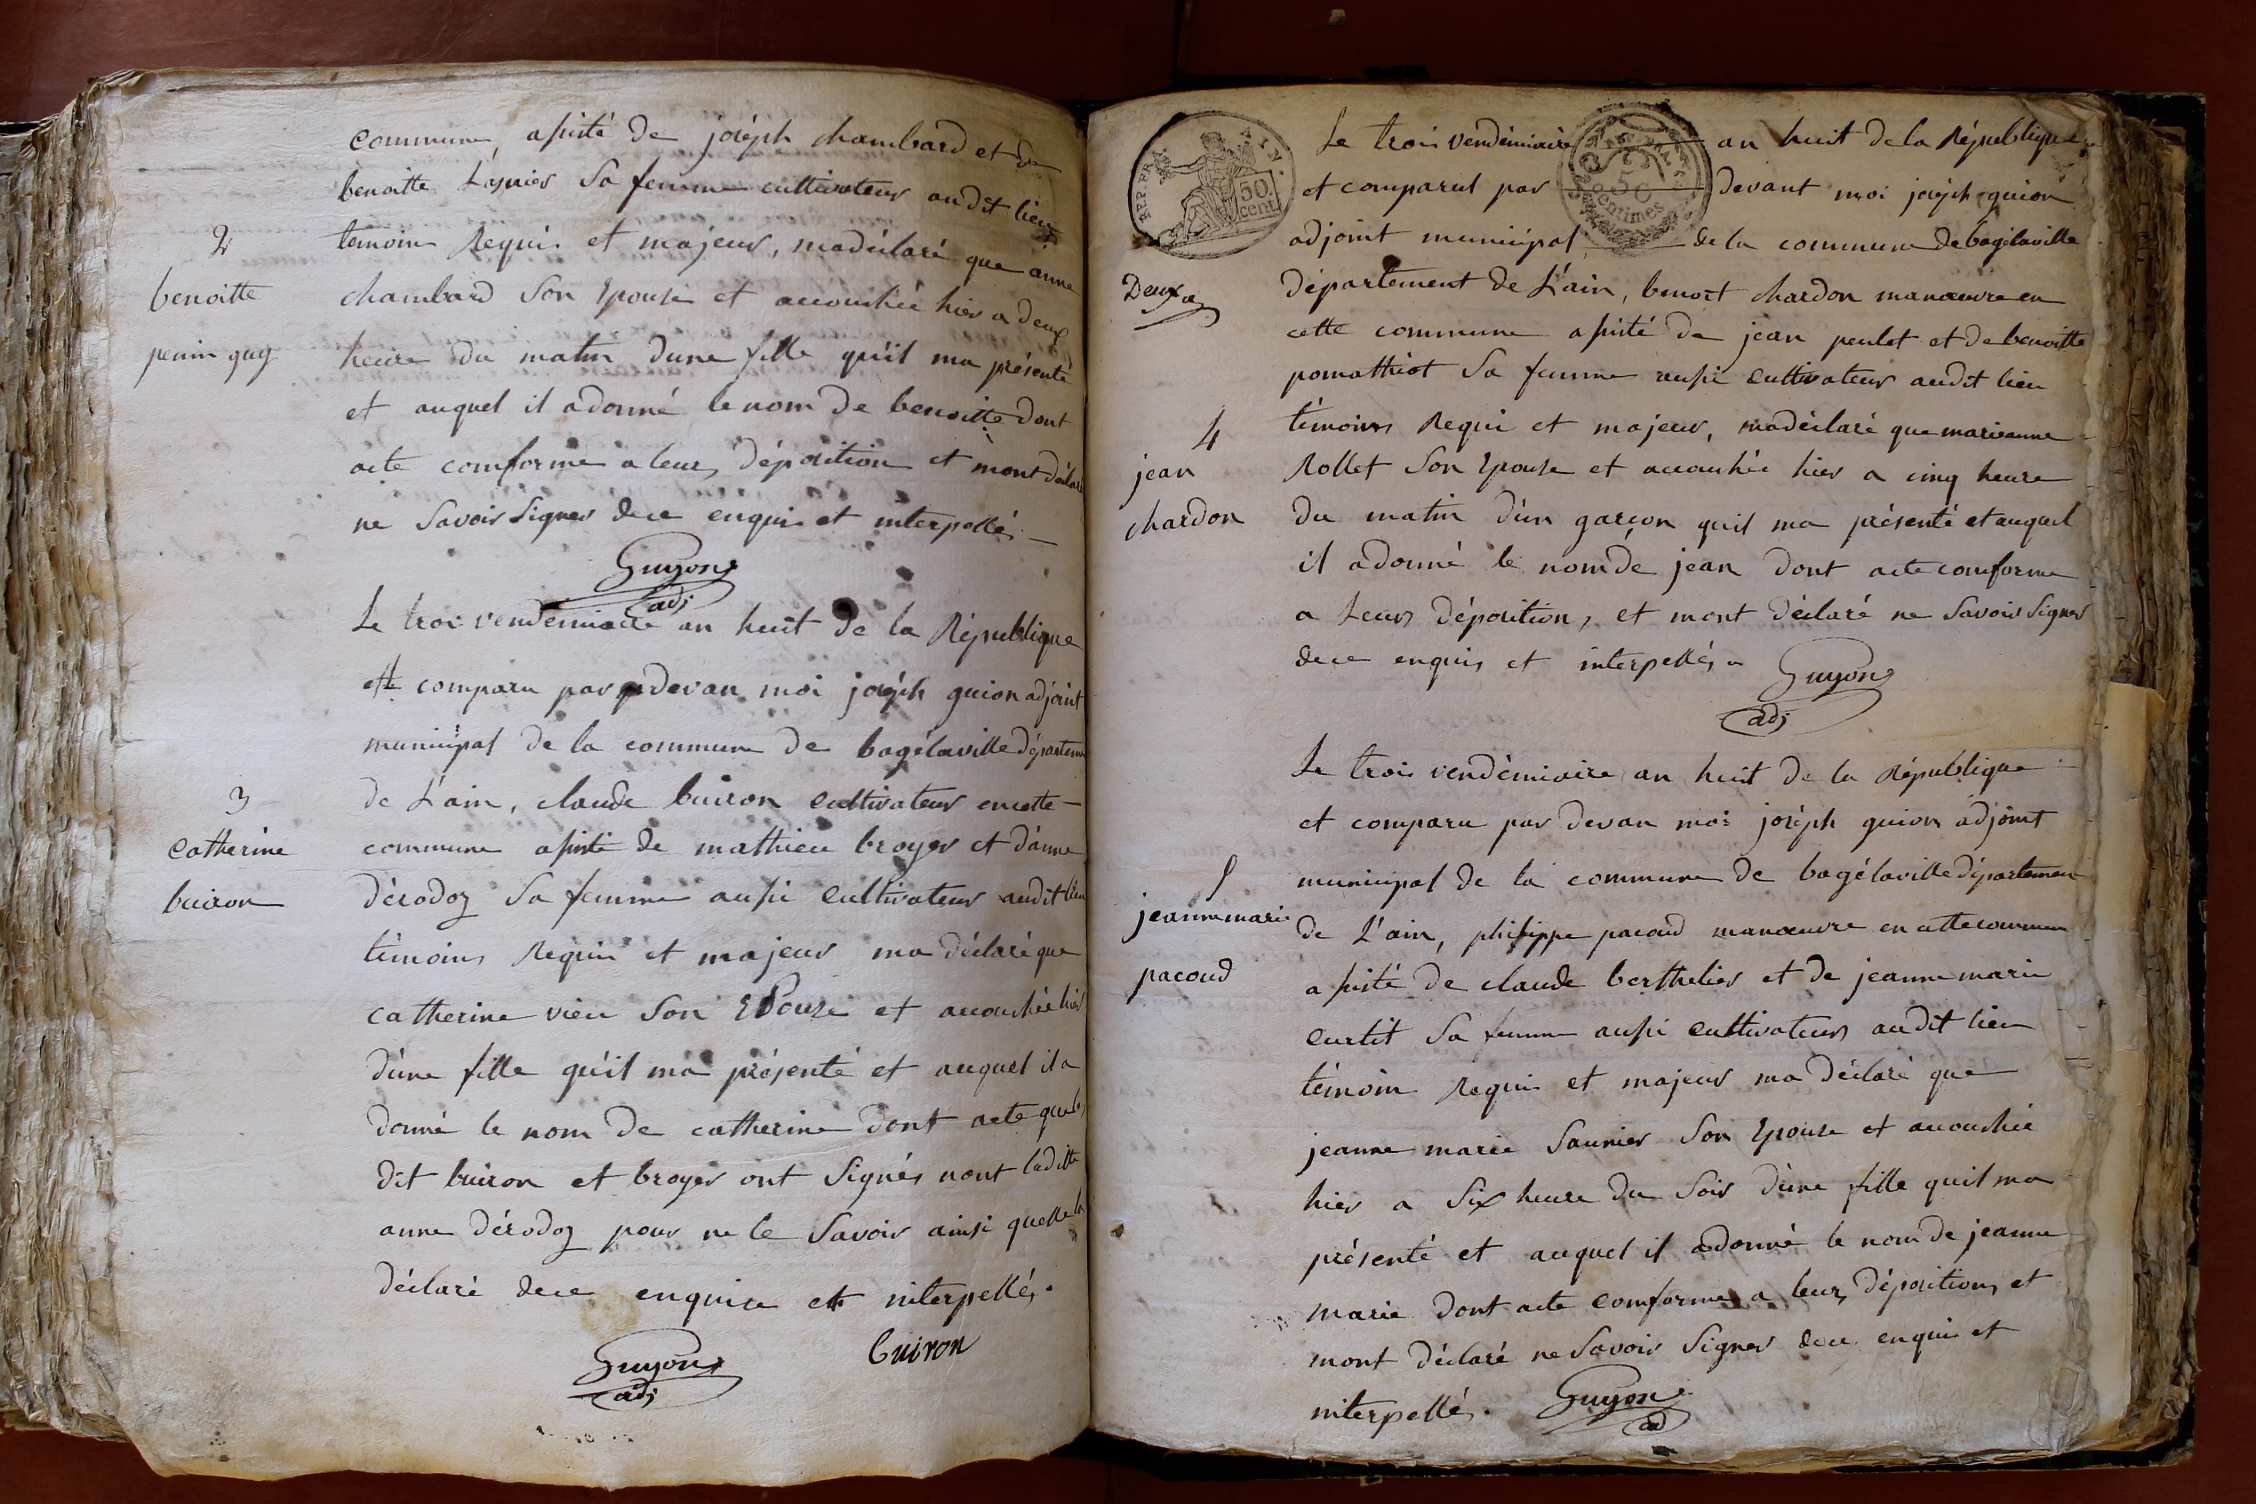 commune, assisté de joséph chambard et de
benoitte Lasnier Sa femme cultivateur audit lieu
2
témoins Requis et majeur, madéclaré que anne
benoitte
chambard Son Epouse et accouchée hier a deux
penin guy
heure du matin dune fille qu'il ma présenté
et auquel il adonné le nom de benoitte dont
acte comforme a leurs déposition et mont déclaré
ne Savoir Signer dece enquis et interpellés.
Guyon
adj
Le troi vendémiaire an huit de la République
et comparu par devan moi joséph guion adjoint
municipal de la commune de bagélaville département
3
de L'ain, claude buiron cultivateur encette
catherine
commune assisté de mathieu broyer et d'anne
buiron
dérodoz Sa femme aussi cultivateur audit lieu
témoins Requis et majeur ma déclaré que
catherine vieu Son Epouse et accouchée hier
d'une fille qu'il ma présenté et auquel il a
donné le nom de catherine dont acte que le
dit buiron et broyer ont Signés nont laditte
anne dérodoz pour ne le Savoir ainsi quelle
déclaré dece enquise et interpellés.
Guyon
adj
buiron
REP. FRA.
AIN.
50
cent.
50
centimes
Le trois vendémiaire an huit de la République
et comparut par devant moi joséph guion
adjoint municipal de la commune de bagélaville
Deux
département de L'ain, benoit chardon manœuvre en
cette commune assisté de jean peulet et de benoitte
pomathiot Sa femme aussi cultivateur audit lieu
4
témoins Requi et majeur, madéclaré que marieanne
jean
Rollet Son Epouse et accouchée hier a cinq heure
chardon
du matin d'un garçon quil ma présenté et auquel
il adonné le nom de jean dont acte comforme
a Leurs déposition, et mont déclaré ne Savoir Signer
dece enquis et interpellés
Guyon
adj
Le trois vendémiaire an huit de la République
et comparu par devan moi joséph guion adjoint
5
municipal de la commune de bagélaville département
jeanne marie
de L'ain, philippe pacoud manœuvre en cette commune
pacoud
assisté de claude berthelier et de jeanne marie
curtit Sa femme aussi cultivateurs audit lieu
témoin Requis et majeur ma déclaré que
jeanne marie Saunier Son Epouse et accouchée
hier a Six heure du Soir d'une fille quil ma
présenté et auquel il adonné le nom de jeanne
marie dont acte comforme a leurs déposition, et
mont déclaré ne Savoir Signer dece enquis et
interpellés.
Guyon
ad